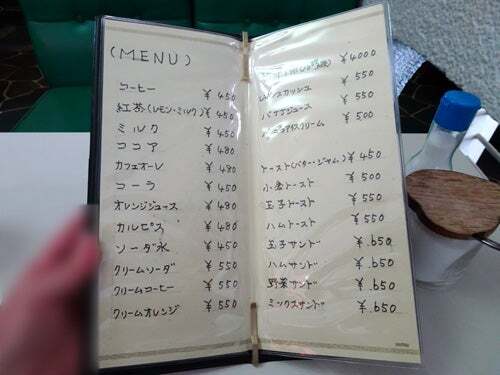 (MENU)
コーヒー ¥450
紅茶(レモン・ミルク) ¥450
ミルク ¥450
ココア ¥480
カフェオーレ ¥480
コーラ ¥450
オレンジジュース ¥480
カルピス ¥480
ソーダ水 ¥450
クリームソーダ ¥550
クリームコーヒー ¥550
クリームオレンジ ¥550
¥4000
レモンスカッシュ ¥550
バナナジュース ¥550
アイスクリーム ¥500
トースト(バター・ジャム) ¥450
小倉トースト ¥500
玉子トースト ¥550
ハムトースト ¥550
玉子サンド ¥.650
ハムサンド ¥.650
野菜サンド ¥.650
ミックスサンド ¥.650